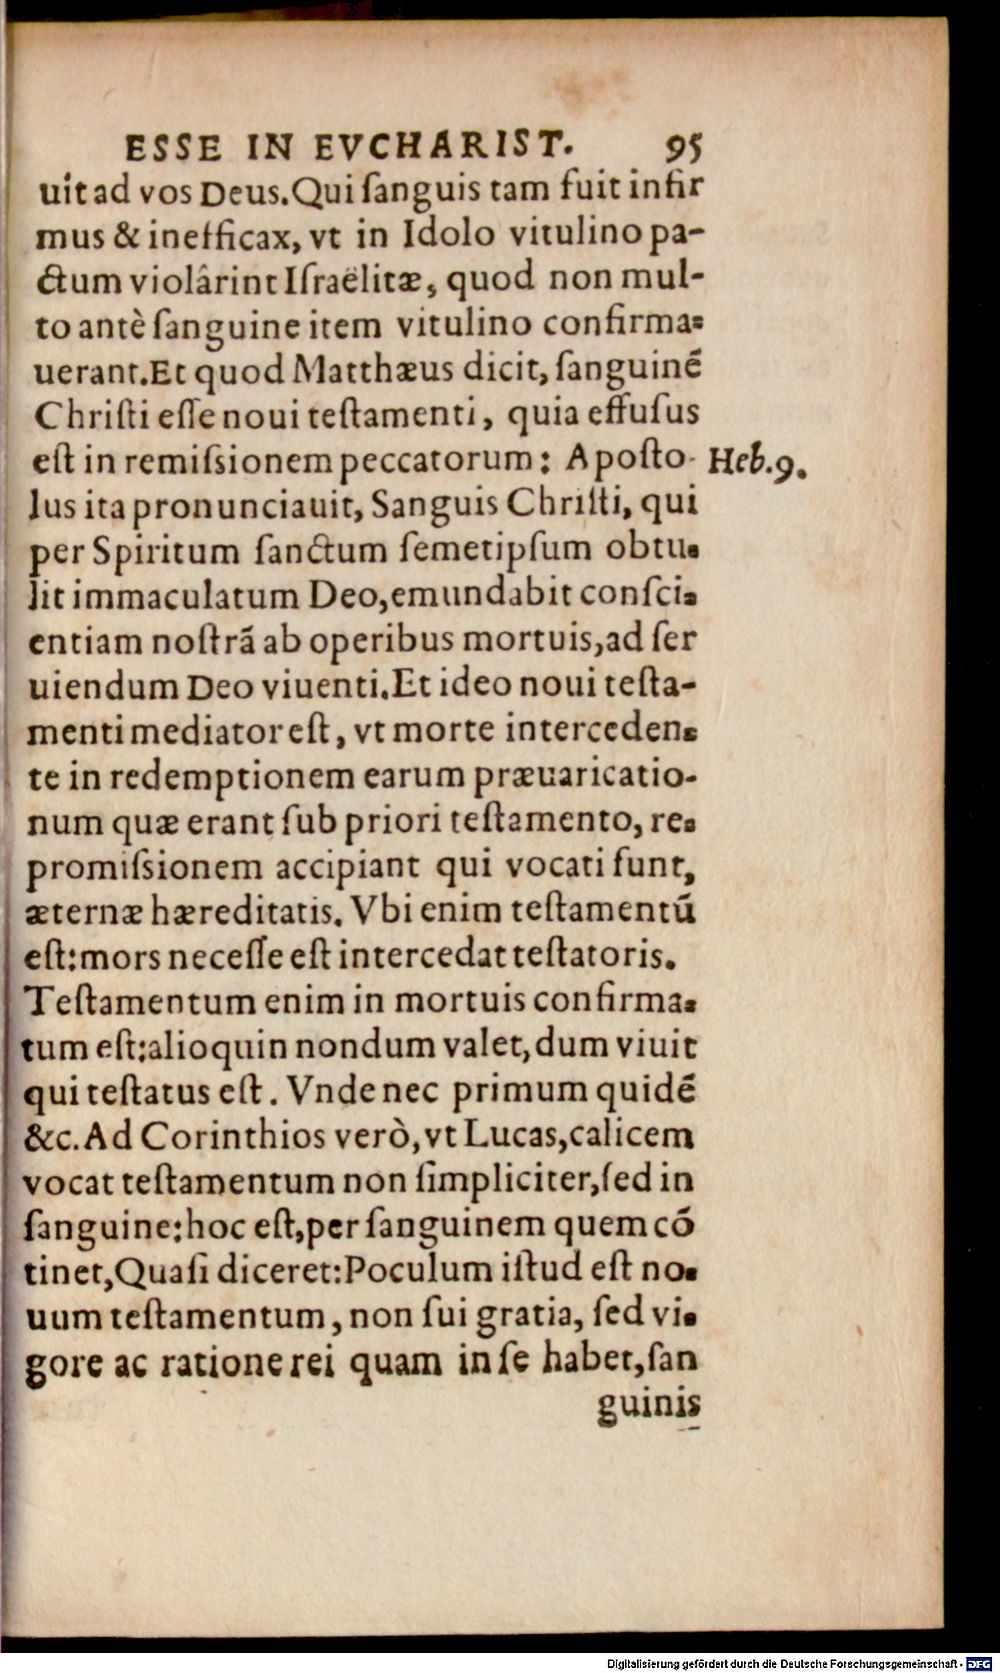 ESSE IN EVCHARIST. 95
uit ad vos Deus. Qui ſanguis tam fuit infir
mus & inefficax, vt in Idolo vitulino pa-
ctum violârint Iſraëlitæ, quod non mul-
to antè ſanguine item vitulino confirma-
uerant. Et quod Matthæus dicit, ſanguinē
Chriſti eſſe noui teſtamenti, quia effuſus
eſt in remiſsionem peccatorum: Apoſto- Heb. 9.
lus ita pronunciauit, Sanguis Chriſti, qui
per Spiritum ſanctum ſemetipſum obtu-
lit immaculatum Deo, emundabit conſci-
entiam noſtrā ab operibus mortuis, ad ſer
uiendum Deo viuenti. Et ideo noui teſta-
menti mediator eſt, vt morte interceden-
te in redemptionem earum præuaricatio-
num quæ erant ſub priori teſtamento, re-
promiſsionem accipiant qui vocati ſunt,
æternæ hæreditatis. Vbi enim teſtamentū
eſt: mors neceſſe eſt intercedat teſtatoris.
Teſtamentum enim in mortuis confirma-
tum eſt: alioquin nondum valet, dum viuit
qui teſtatus eſt. Vnde nec primum quidē
&c. Ad Corinthios verò, vt Lucas, calicem
vocat teſtamentum non ſimpliciter, ſed in
ſanguine: hoc eſt, per ſanguinem quem cō
tinet, Quaſi diceret: Poculum iſtud eſt no-
uum teſtamentum, non ſui gratia, ſed vi-
gore ac ratione rei quam in ſe habet, ſan
guinis
Digitalisierung gefördert durch die Deutsche Forschungsgemeinschaft - DFG